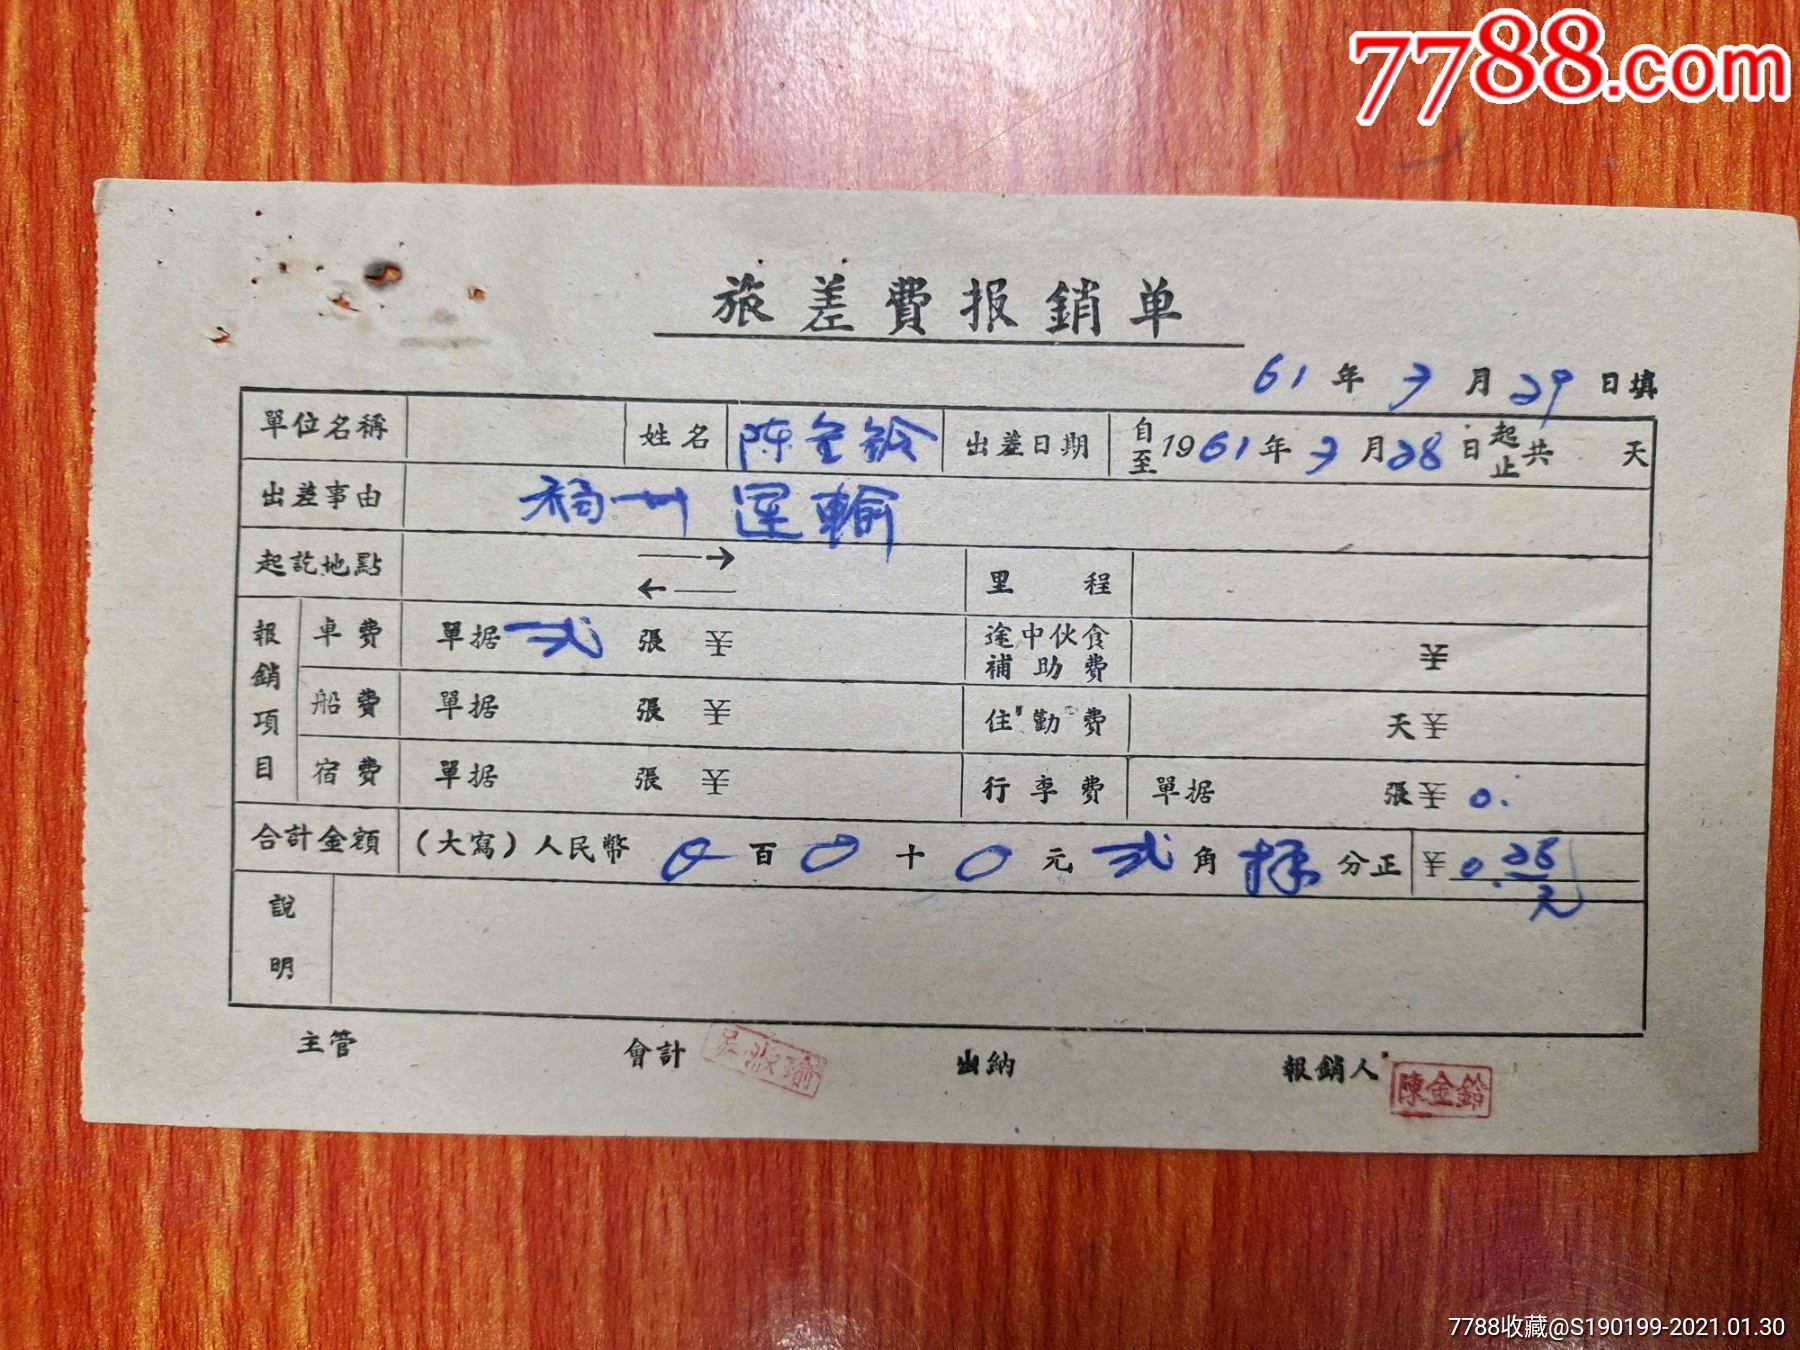 7788.com
旅差費报銷单
61年3月29日填
單位名稱 姓名 陈金鈴 出差日期 自至1961年3月28日起止共 天
出差事由 福州運輸
起訖地點 → ← 里 程
報銷項目
車費 單据 弍 張 ¥ 途中伙食補助費 ¥
船費 單据 張 ¥ 住勤費 天¥
宿費 單据 張 ¥ 行李費 單据 張¥ 0.
合計金額 (大寫)人民幣 0百0十0元弍角 分正 ¥0.28元
說明
主管 會計 吴淑瑜 出納 報銷人 陳金鈴
7788收藏@S190199-2021.01.30